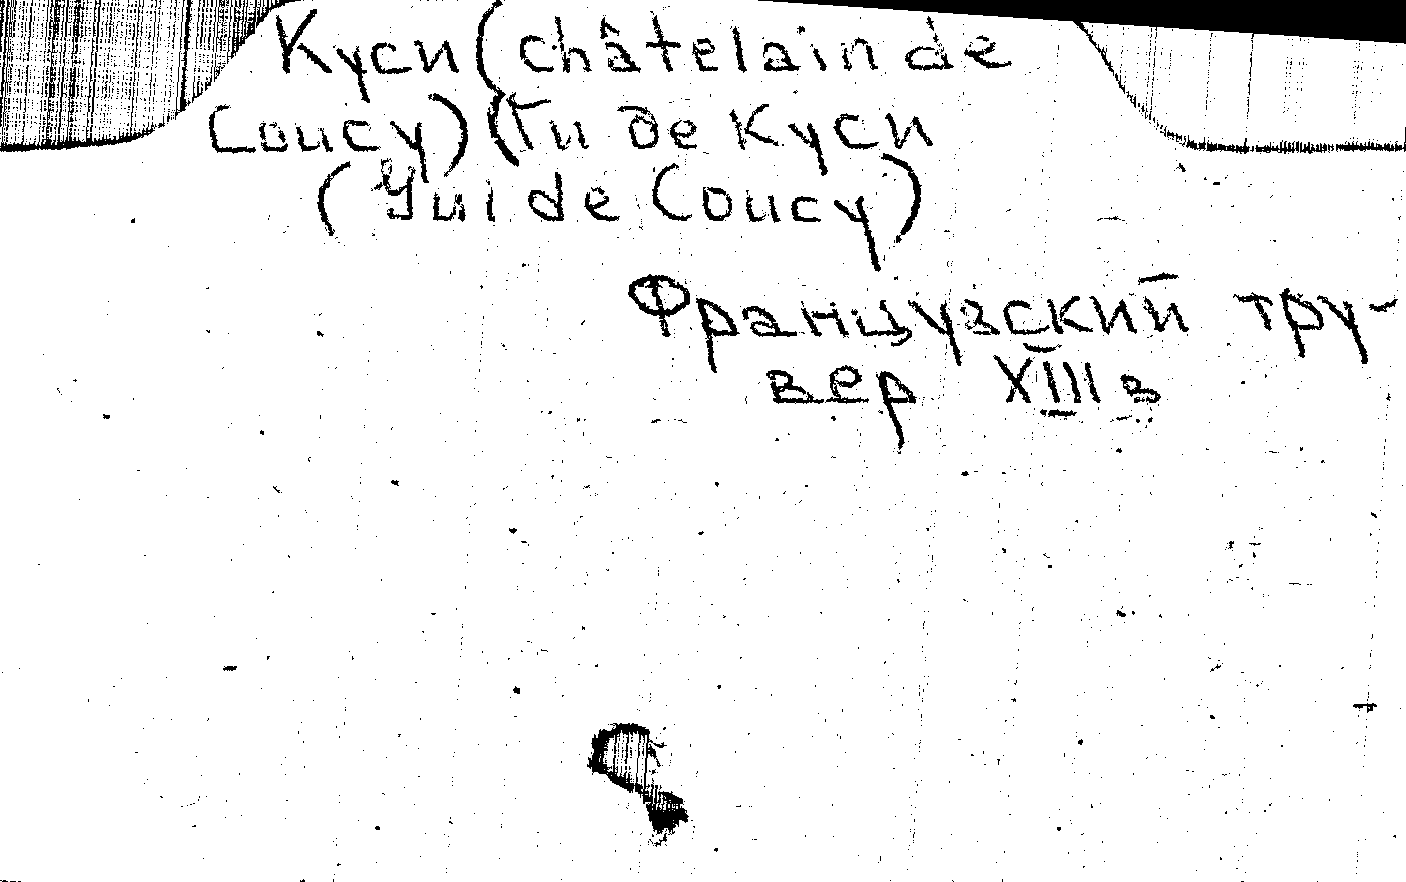 Куси (châtelain de
Coucy) (Ги де Куси
(Gui de Coucy)
Французский тру-
вер XIII в